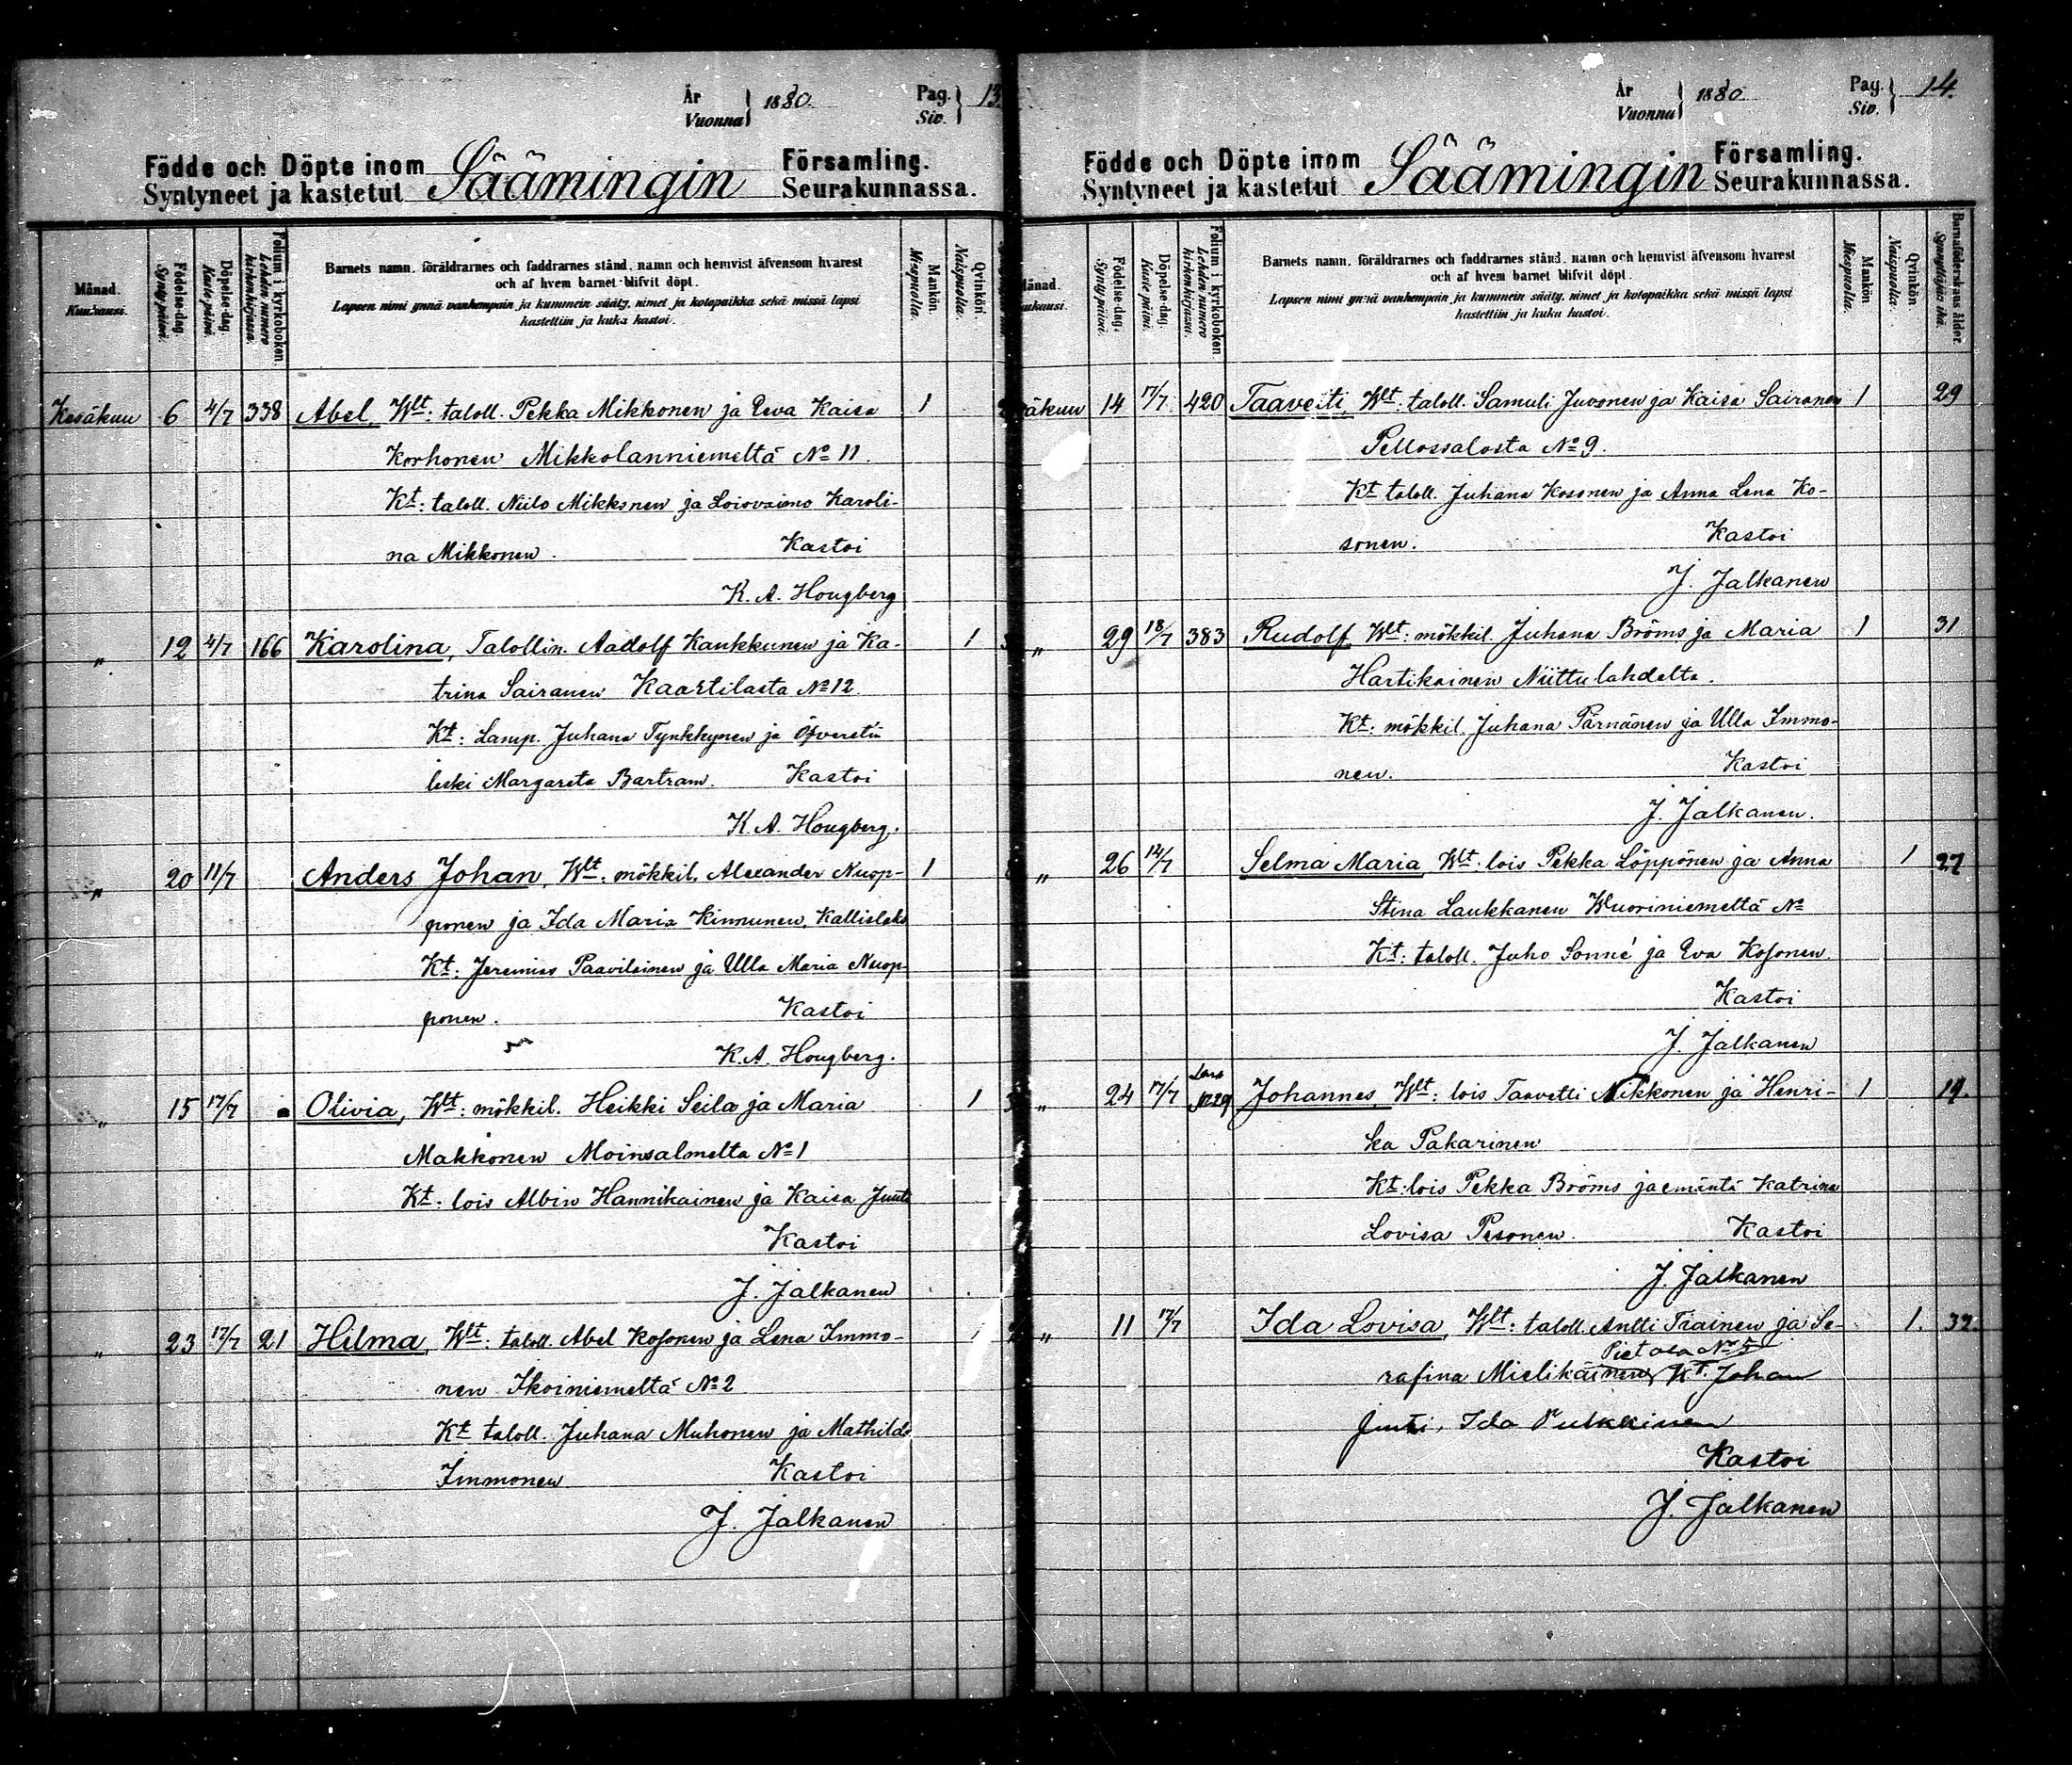 År
Vuonna } 1880. Pag.
Siv. } 13
Födde och Döpte inom Säämingin Församling.
Syntyneet ja kastetut Seurakunnassa.
Månad.
Kuukausi.
Födelse-dag.
Synty päivä.
Döpelse-dag.
Kaste päivä.
Folium i kyrkoboken.
Lehden numero kirkonkirjassa.
Barnets namn, föräldrarnes och faddrarnes stånd, namn och hemvist äfvensom hvarest
och af hvem barnet blifvit döpt.
Lapsen nimi ynnä vanhempain ja kummein sääty, nimet ja kotopaikka sekä missä lapsi
kastettiin ja kuka kastoi.
Mankön.
Miespuolia.
Qvinkön.
Naispuolia.
Kesäkuu 6 4/7 338 Abel, Wlt: taloll. Pekka Mikkonen ja Eva Kaisa 1
Korhonen Mikkolanniemeltä No 11.
Kt: taloll. Niilo Mikkonen ja Loisvaimo Karoli-
na Mikkonen. Kastoi
K. A. Hougberg
" 12 4/7 166 Karolina, Talollin. Aadolf Kaukkunen ja Ka- 1
trina Sairanen Kaartilasta No 12.
Kt: Lamp. Juhana Tynkkynen ja Öfverstin
leski Margareta Bartram. Kastoi
K. A. Hougberg.
" 20 11/7 Anders Johan, Wlt: mökkil. Alexander Nuop- 1
ponen ja Ida Maria Kinnunen, Kallislaks
Kt: Jeremias Paavilainen ja Ulla Maria Nuop-
ponen. Kastoi
K. A. Hougberg.
" 15 17/7 Olivia, Wlt: mökkil. Heikki Seila ja Maria 1
Makkonen Moinsalmelta No 1
Kt: lois Albin Hannikainen ja Kaisa Juuti
Kastoi
J. Jalkanen
" 23 17/7 21 Hilma, Wlt: taloll. Abel Kosonen ja Lena Immo- 1
nen Ikoiniemeltä No 2
Kt taloll. Juhana Muhonen ja Mathilda
Immonen Kastoi
J. Jalkanen
År
Vuonna } 1880. Pag.
Siv. } 14.
Födde och Döpte inom Säämingin Församling.
Syntyneet ja kastetut Seurakunnassa.
Månad.
Kuukausi.
Födelse-dag.
Synty päivä.
Döpelse-dag.
Kaste päivä.
Folium i kyrkoboken.
Lehden numero kirkonkirjassa.
Barnets namn, föräldrarnes och faddrarnes stånd, namn och hemvist äfvensom hvarest
och af hvem barnet blifvit döpt.
Lapsen nimi ynnä vanhempain ja kummein sääty, nimet ja kotopaikka sekä missä lapsi
kastettiin ja kuka kastoi.
Mankön
Miespuolia.
Qvinkön.
Naispuolia.
Barnaföderskans ålder.
Synnyttäjän ikä.
äkuu 14 17/7 420 Taavetti, Wlt: taloll. Samuli Juvonen ja Kaisa Sairanen 1 29
Pellossalosta No 9.
Kt taloll. Juhana Kosonen ja Anna Lena Ko-
sonen. Kastoi
J. Jalkanen
" 29 18/7 383 Rudolf Wlt: mökkil. Juhana Bröms ja Maria 1 31
Hartikainen Niittulahdelta.
Kt: mökkil. Juhana Pärnänen ja Ulla Immo-
nen. Kastoi
J. Jalkanen.
" 26 14/7 Selma Maria, Wlt: lois Pekka Löppönen ja Anna 1 27
Stina Laukkanen Wuoriniemeltä No
Kt: taloll. Juho Sonné ja Eva Kosonen.
Kastoi
J. Jalkanen
" 24 17/7 Johannes, Wlt: lois Taavetti Nikkonen ja Henri- 1 19.
ka Pakarinen
Kt: lois Pekka Bröms ja emäntä Katrina
Lovisa Pesonen. Kastoi
J. Jalkanen
" 11 17/7 Ida Lovisa, Wlt: taloll. Antti Tiainen ja Se- 1. 32.
Pietola No 5
rafina Mielikäinen, Kt. Johan
Juuti, Ida Pulkkinen
Kastoi
J. Jalkanen